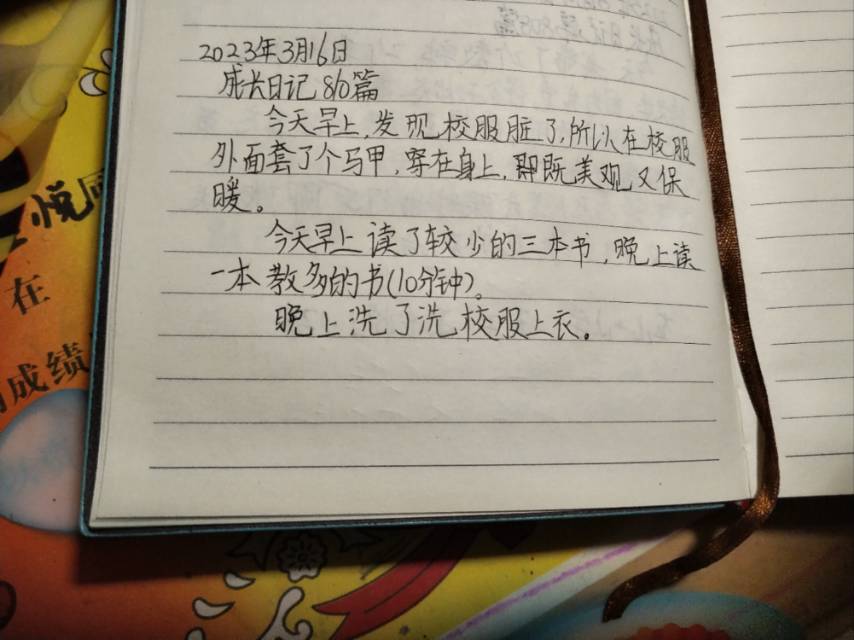 2023年3月16日
成长日记810篇
今天早上,发现校服脏了,所以在校服
外面套了个马甲,穿在身上,即既美观又保
暖。
今天早上读了较少的三本书,晚上读
一本教多的书(10分钟)。
晚上洗了洗校服上衣。
悦
在
成绩